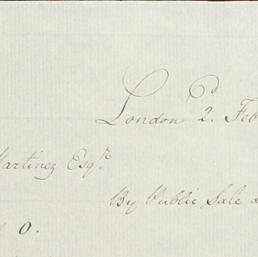 London 2. Feb
Martinez Esqr.
By Public Sale
0.